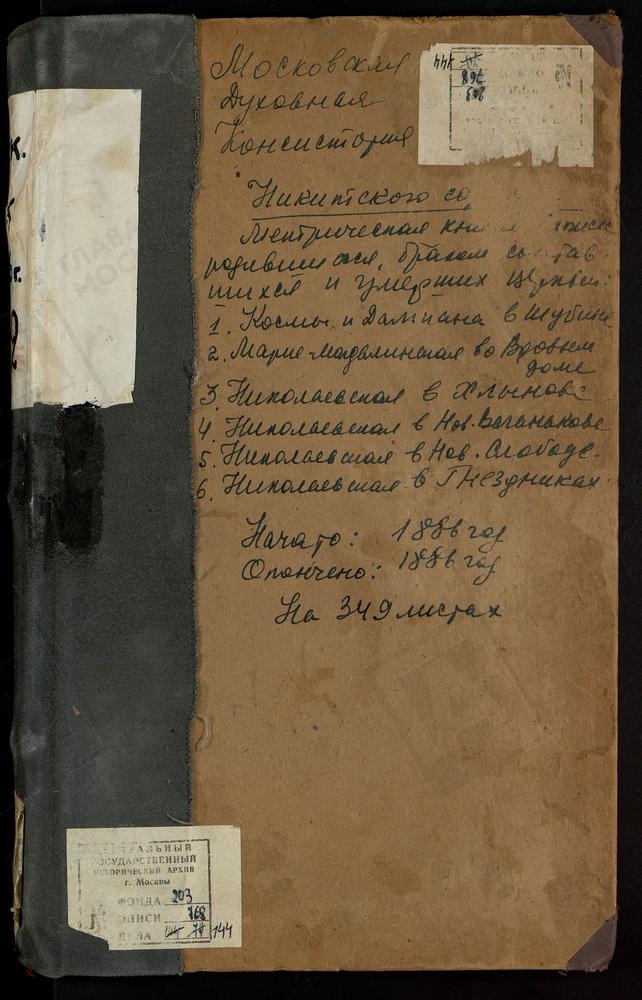 Московская
Духовная
Консистория
Никитского со
Метрическая записи
родившихся, браком сочетав-
шихся и умерших церквей:
1. Космы и Дамиана в Шубине
2. Марие-Магдалинская во Вдовьем
доме
3. Николаевская в Хлынове
4. Николаевская в Нов. Ваганькове
5. Николаевская в Нов. Слободе
6. Николаевская в Гнездниках
Начато: 1886 год
Окончено: 1886 год
На 349 листах
ЦЕНТРАЛЬНЫЙ
ГОСУДАРСТВЕННЫЙ
ИСТОРИЧЕСКИЙ АРХИВ
г. Москвы
ФОНДА 203
ОПИСИ 768
ДЕЛА 144